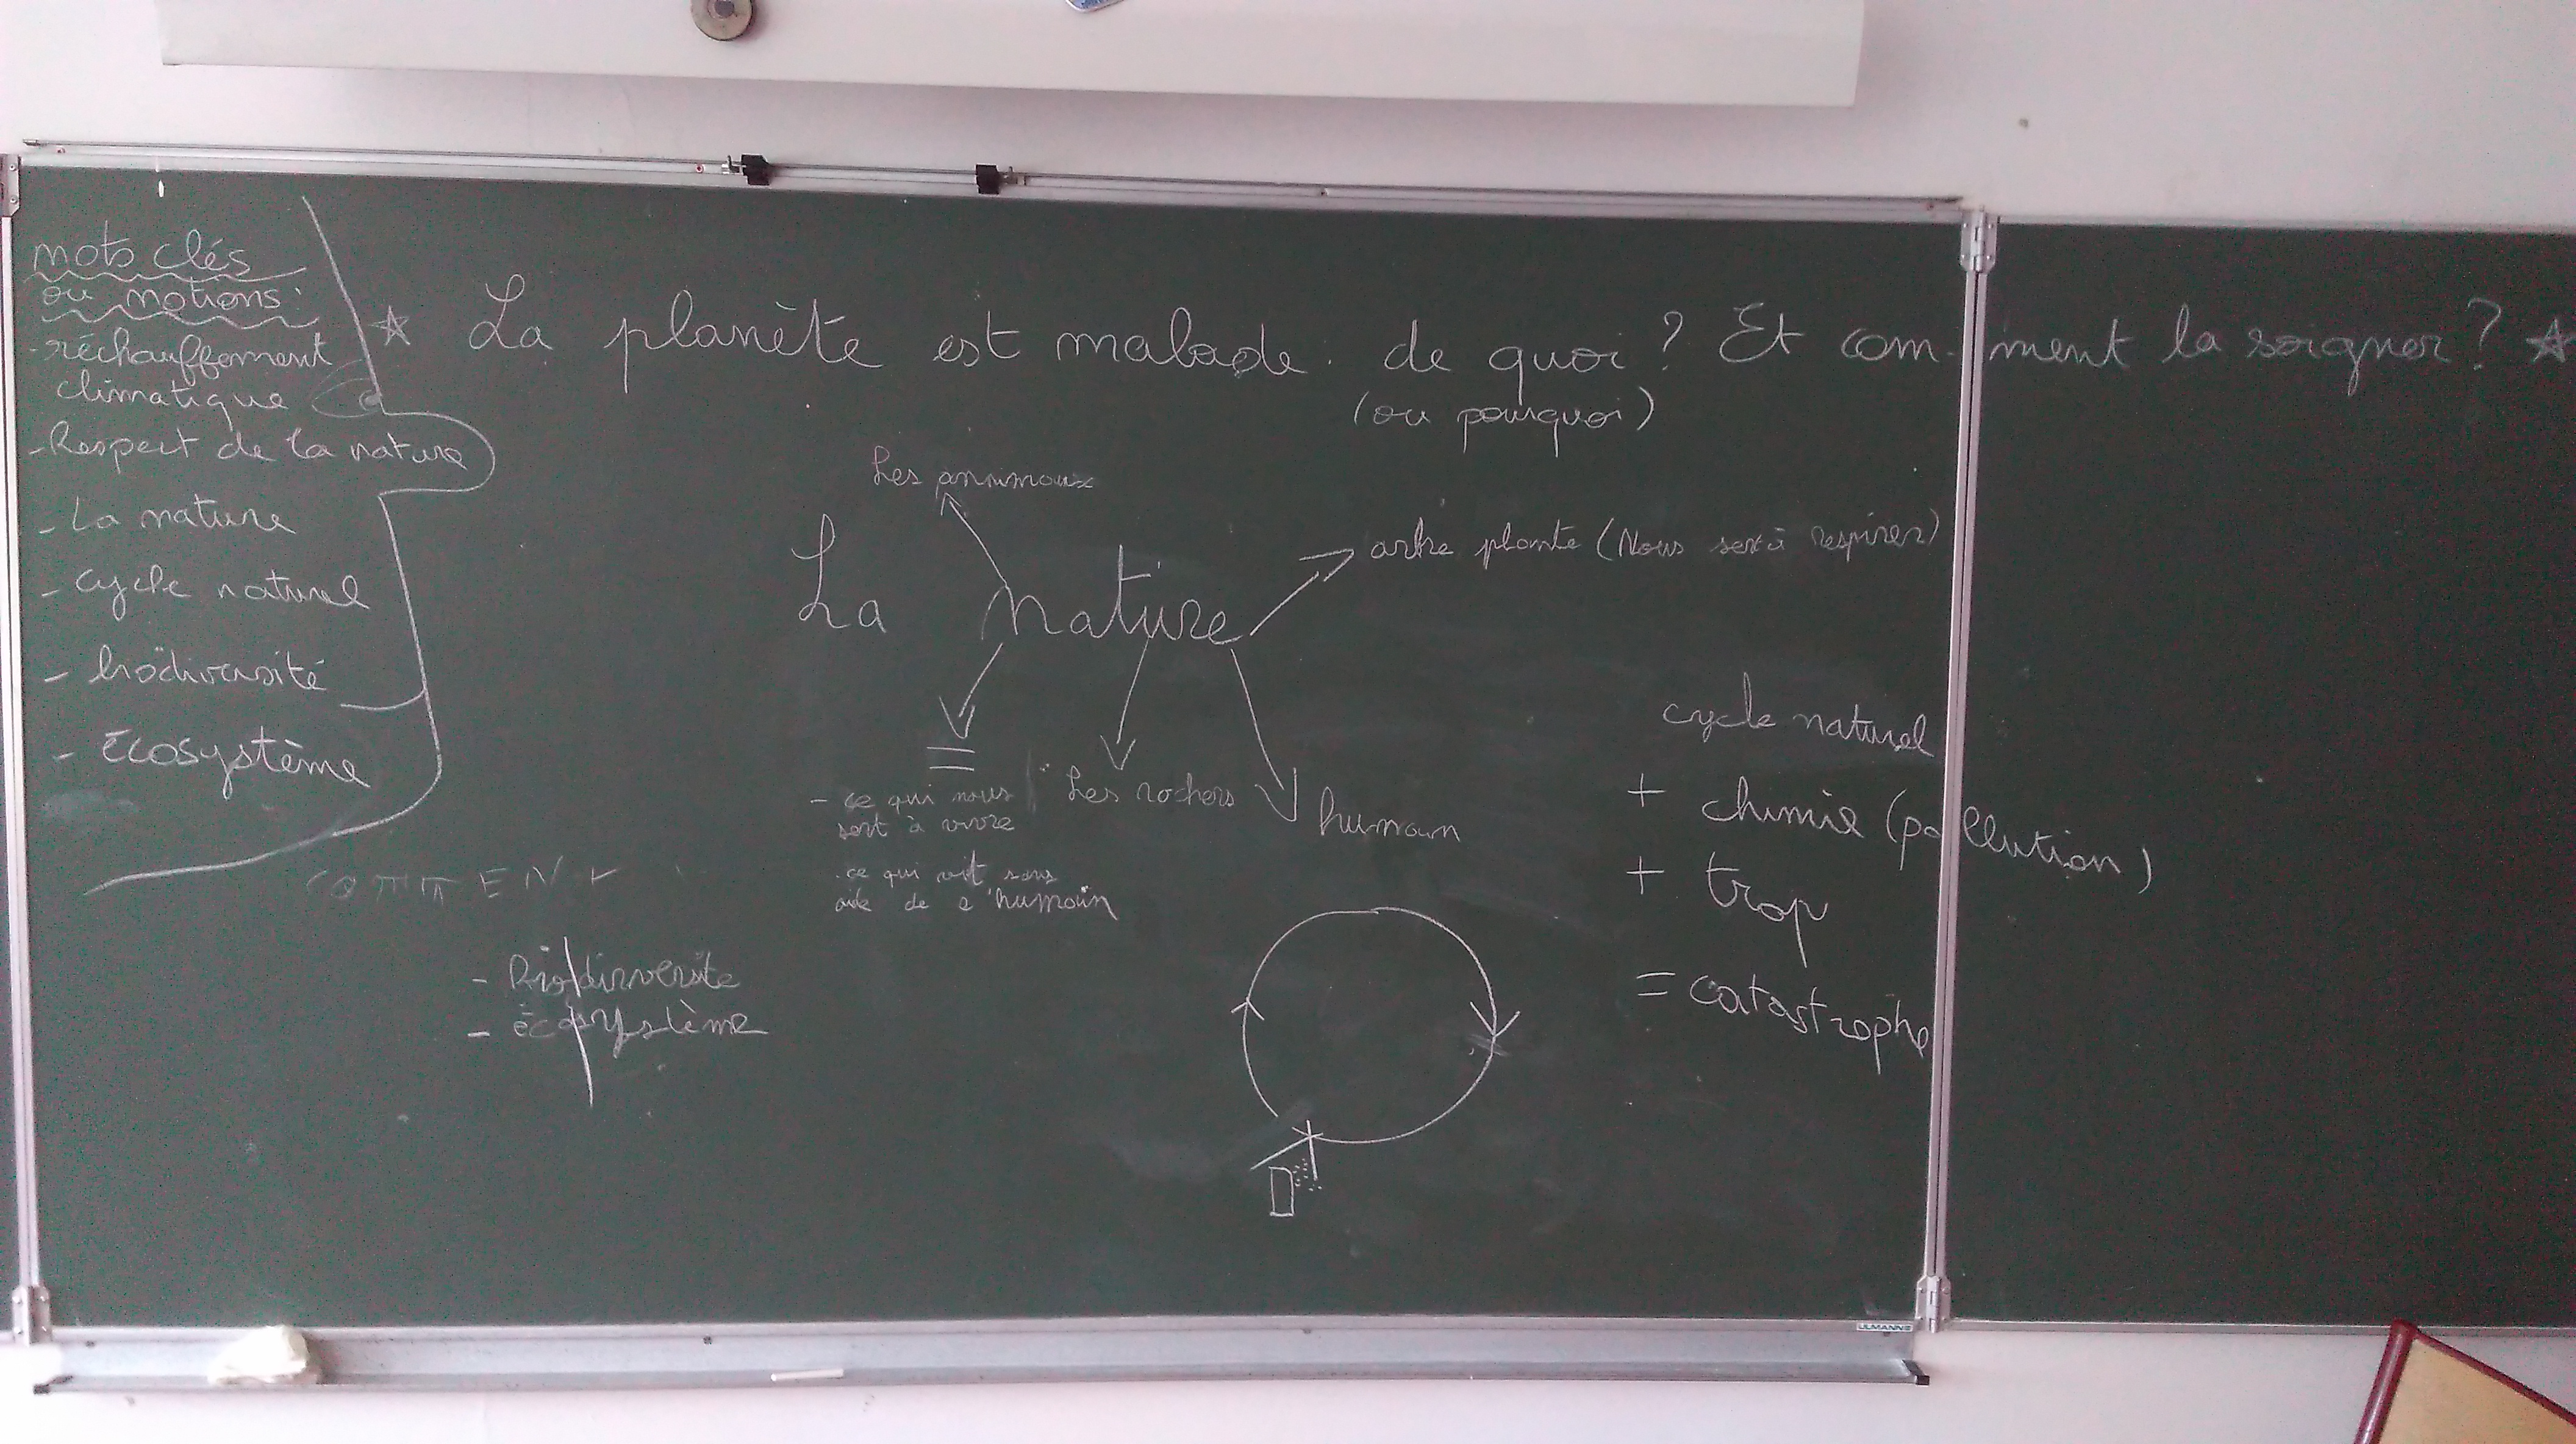 mots clés
ou notions:
- réchauffement
climatique
- Respect de la nature
- La nature
- cycle naturel
- biodiversité
- écosystème
La planète est malade. de quoi ? Et com-ment la soigner ?
(ou pourquoi)
Les animaux
arbre plante (Nous sert à respirer)
La nature
=
- ce qui nous
sert à vivre
- ce qui vit sans
aide de l'humain
Les rochers
humain
COMMENT
- Biodinversité
- écosystème
cycle naturel
+ chimie (pollution)
+ trop
= catastrophe
ULMANN